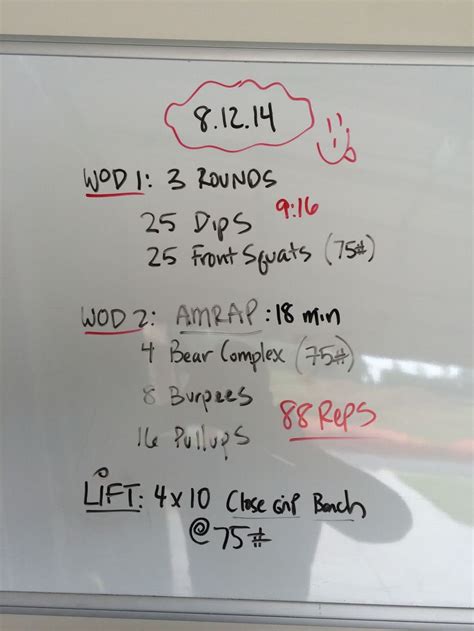 8.12.14
WOD 1: 3 ROUNDS
9:16
25 Dips
25 Front Squats (75#)
WOD 2: AMRAP: 18 min
4 Bear Complex (75#)
8 Burpees
88 Reps
16 Pullups
LIFT: 4x10 Close Grip Bench
@75#